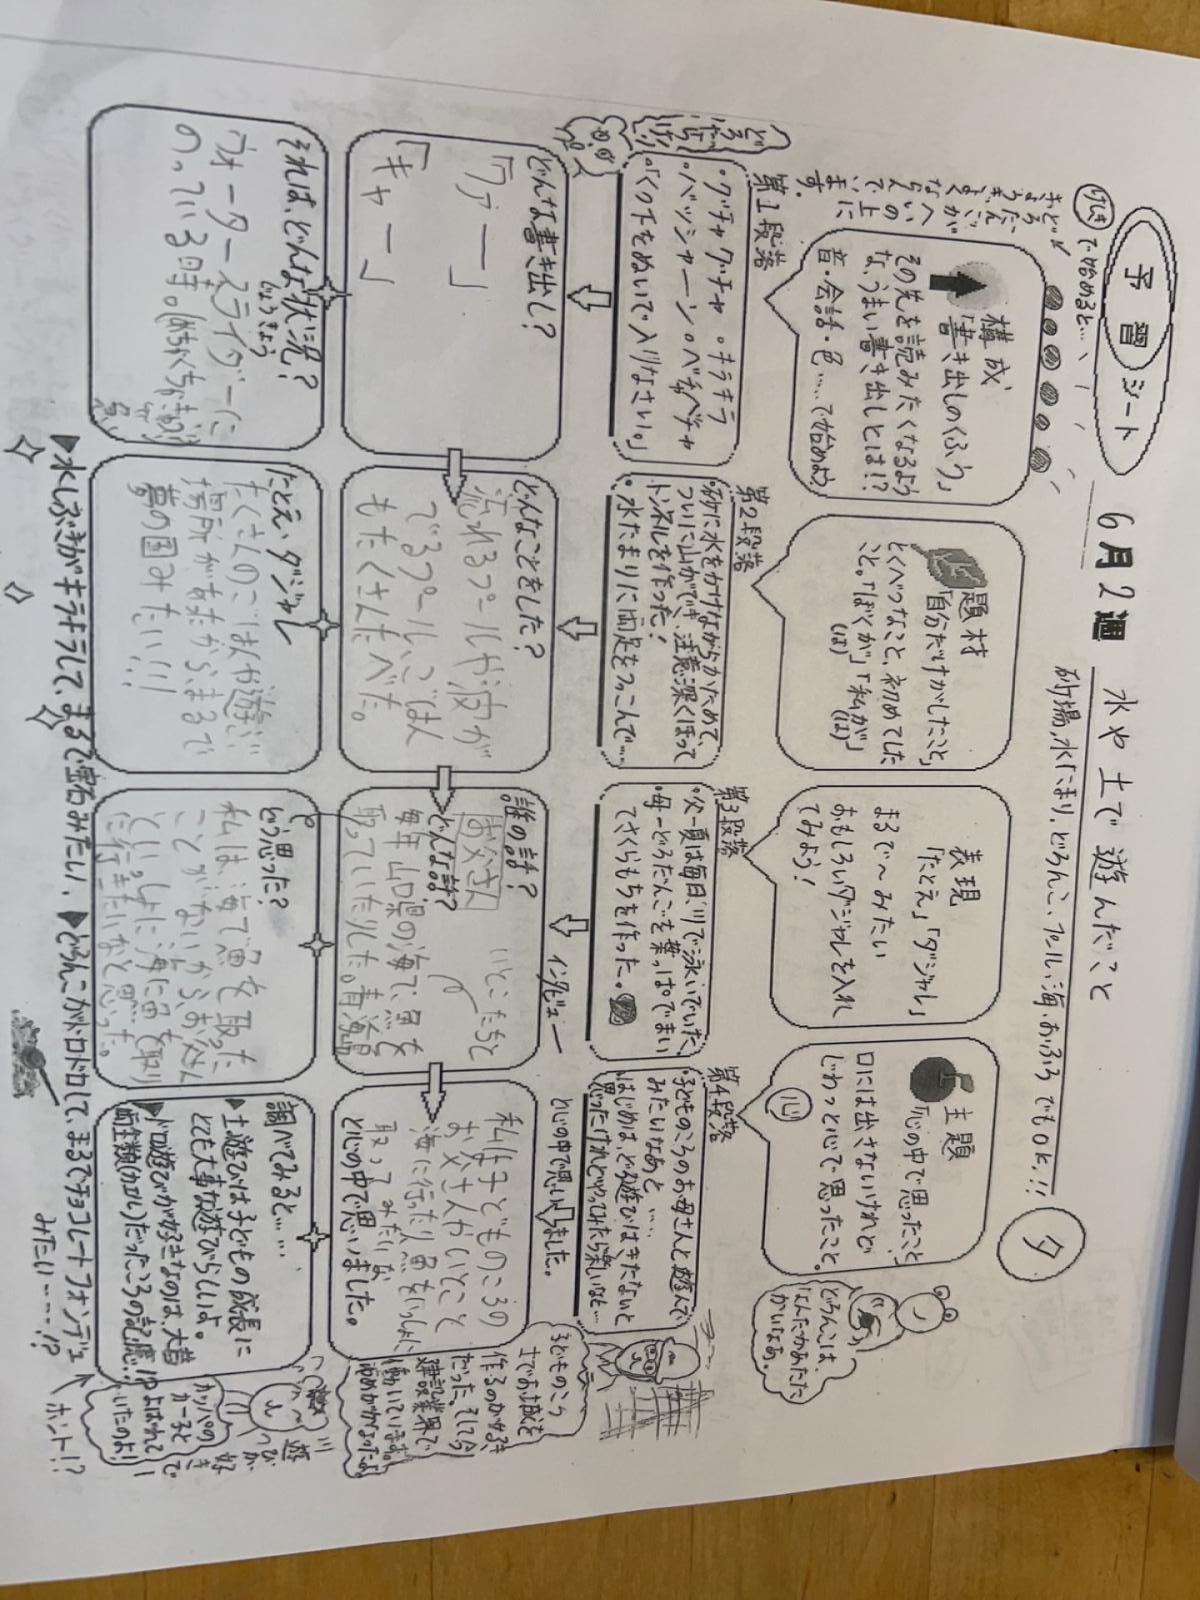 予習シート
6月2週
水や土で遊んだこと
砂場、水たまり、どろんこ、プール、海、おふろでもOK!!
夕
で始めると…
構成
「書き出しのくふう」
その先を読みたくなるよう
な、うまい書き出しとは!?
音・会話・色……で始めよう
題材
「自分だけがしたこと」
とくべつなこと、初めてした
こと。「ぼくが」「私が」
(は) (は)
表現
「たとえ」「ダジャレ」
まるで〜みたい
おもしろいダジャレを入れ
てみよう!
主題
「心の中で思ったこと」
口には出さないけれど
じわっと心で思ったこと。
心
どろんこは、
なんだかあたた
かいなあ。
第1段落
・グチャグチャ ・キラキラ
・バッシャーン ・ベチャベチャ
・「くつ下をぬいで入りなさい。」
第2段落
・砂に水をかけながらかためて、
ついに山ができ、注意深くほって
トンネルを作った!
・水たまりに両足をつっこんで…
第3段落
・父―夏は毎日、川で泳いでいた。
・母―どろだんごを葉っぱでまい
てさくらもちを作った。
第4段落
・子どものころのお母さんと遊んで
みたいなあと……
・はじめは、どろ遊びはきたないと
思ったけれどやってみたら楽しいなと…
どんな書き出し?
「ワァーー」
「キャーー」
どんなことをした?
流れるプールや波が
でるプール。ごはん
もたくさんたべた。
インタビュー
誰の話?
お父さん
いとこたちと
どんな話?
毎年山口県の海で、魚を
取っていたりした。青海島
と心の中で思いました。
私は子どものころの
お父さんやいとこと
海に行ったり魚をいっしょに
取ってみたいな
と心の中で思いました。
子どものころ
土でお城を
作るのが好き
だった。そして今
建設業界で
働いています。
ゆめがかなったよ
それは、どんな状況?
じょうきょう
ウォータースライダーに
のっている時。
たとえ・ダジャレ
たくさんのごはんや遊ぶ
場所があるから、まるで
夢の国みたい!!!
どう思った?
私は、海で魚を取った
ことがないから、お父さん
といっしょに海に魚を取り
に行きたいなと思った。
調べてみると……
▶土遊びは子どもの成長に
とても大事な遊びらしいよ。
▶ドロ遊びが好きなのは、大昔
両生類(カエル)だったころの記憶!?
ホント!?
▶水しぶきがキラキラして、まるで宝石みたい、
▶どろんこがドロドロして、まるでチョコレートフォンデュ
みたい……!?